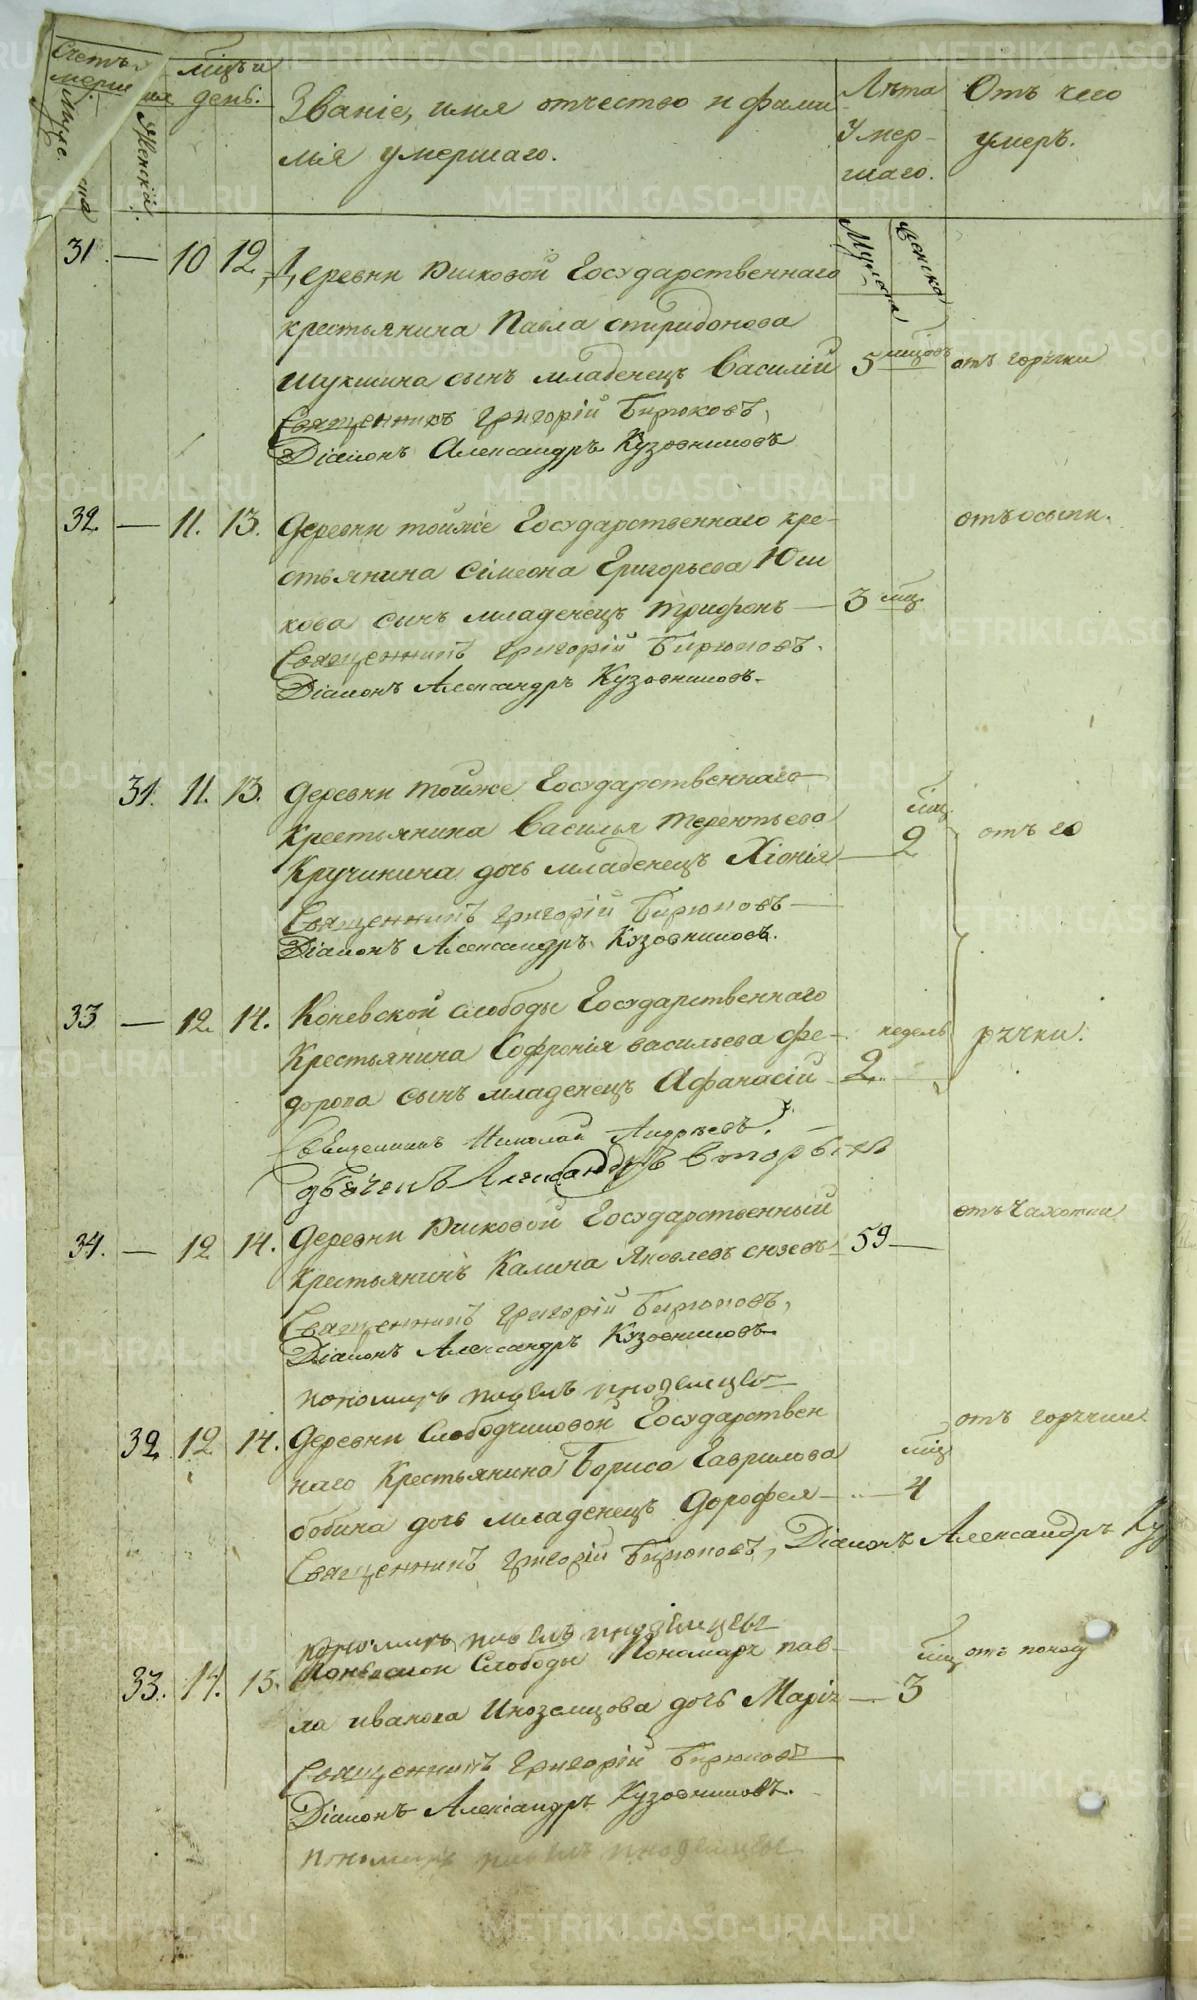 Счетъ мѣсцъ и
день.
Званіе, имя отчество и фами
лія умершаго.
Лѣта
Умер-
шаго.
Отъ чего
умеръ.
Женска
31 — 10 12 Деревни Юшковой Государственнаго
крестьянина Павла спиридонова
Шукшина сынъ младенецъ Василій 5 отъ горячки
Священникъ Григорій Бирюковъ,
Діаконъ Александръ Кузовниковъ
32 — 11. 13. Деревни тойже Государственнаго кре-
стьянина Симеона Григорьева Юш
кова сынъ младенецъ трифонъ — 3 мц.
отъ оспы.
Священникъ Григорій Бирюковъ.
Діаконъ Александръ Кузовниковъ.
31. 11. 13. Деревни тойже Государственнаго
Крестьянина Василья терентьева
Кручинина дочь младенецъ Хіонія — мц. 2 отъ го
Священникъ Григорій Бирюковъ
Діаконъ Александръ Кузовниковъ.
33 — 12. 14. Коневской слободы Государственнаго
Крестьянина Софронія васильева фе-
дорова сынъ младенецъ Афанасій недель 2. рячки.
Священникъ Николай Андреевъ.
Александръ
34. — 12 14. Деревни Юшковой Государственный
крестьянинъ Калина Яковлевъ 59 — отъ Чахотки
Священникъ Григорій Бирюковъ,
Діаконъ Александръ Кузовниковъ
пономарь павелъ иноземцевъ
32 12 14. Деревни Слободчиковой Государствен
наго Крестьянина Бориса Гаврилова
бобина дочь младенецъ Дорофея — мц 4 отъ горячки.
Священникъ Григорій Бирюковъ, Діаконъ Александръ Куз
пономарь павелъ иноземцевъ
33. 14. 15. Коневской Слободы Пономаря пав-
ла иванова Иноземцова дочь Марія — мц 3 отъ поносу
Священникъ Григорій Бирюковъ
Діаконъ Александръ Кузовниковъ.
пономарь павелъ иноземцевъ
METRIKI.GASO-URAL.RU